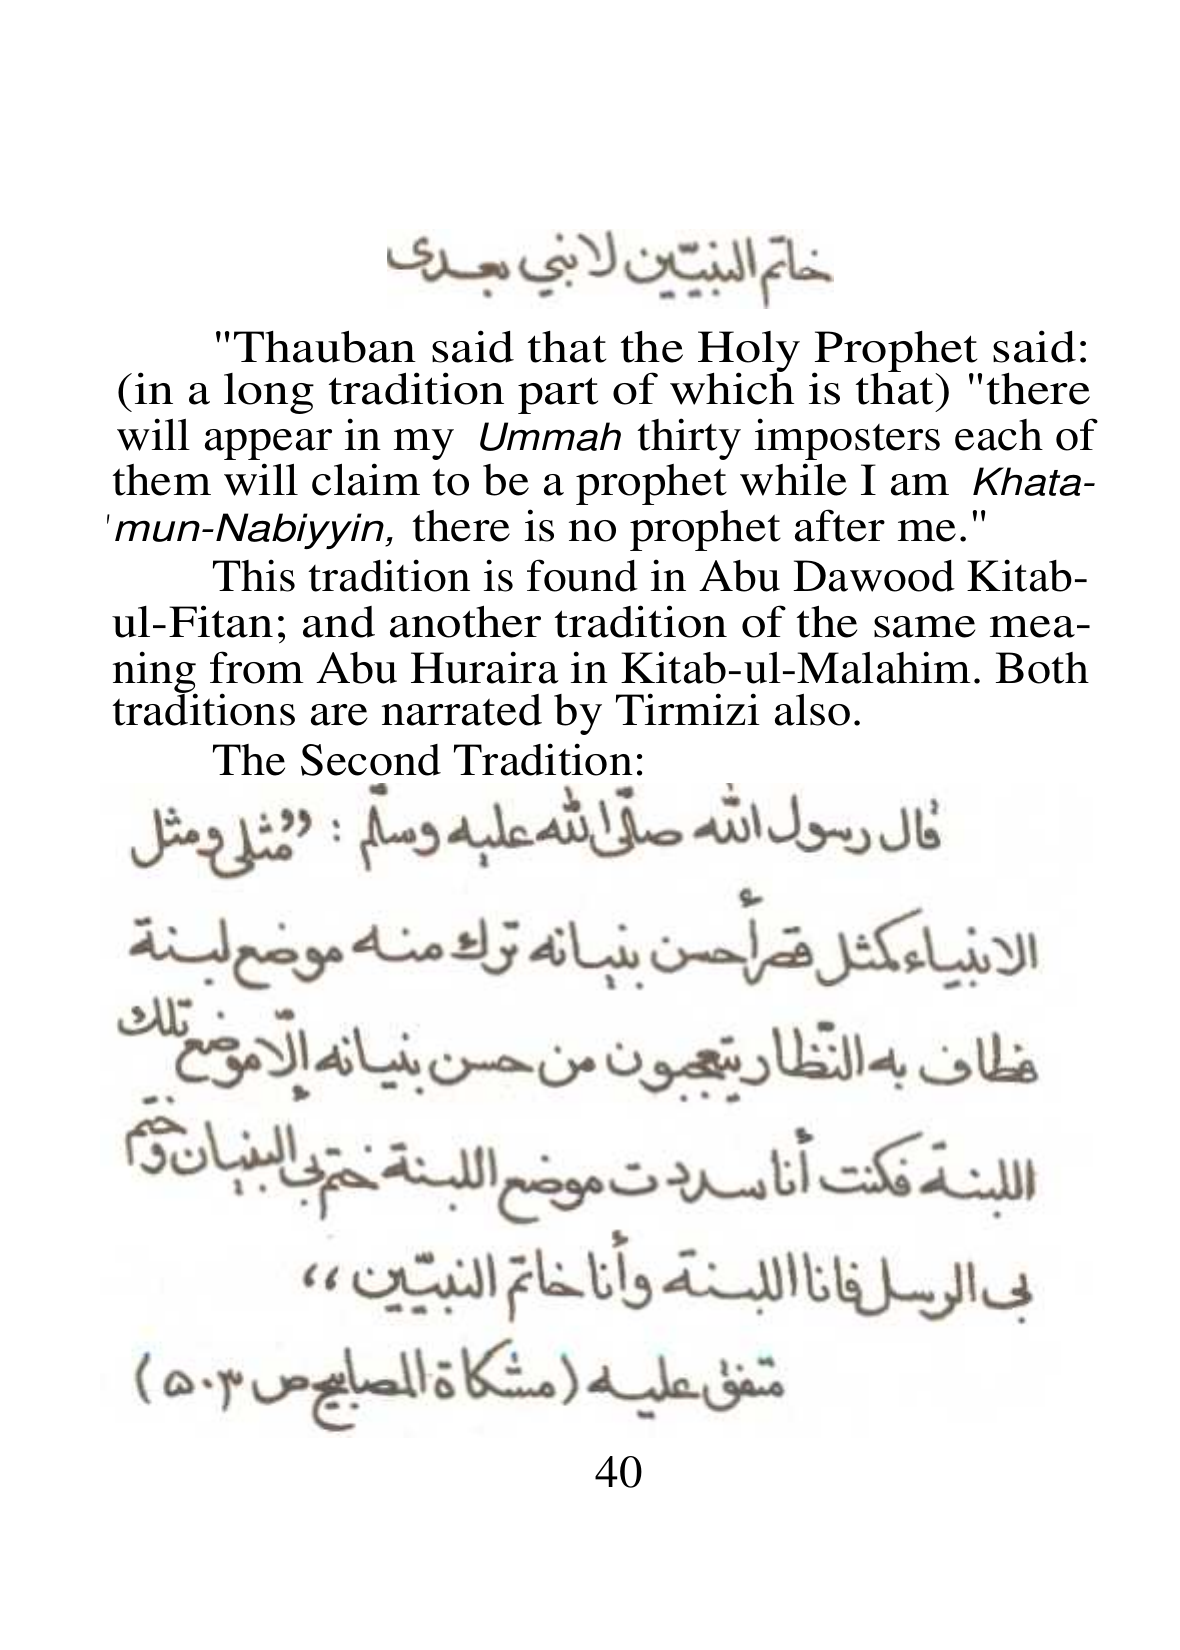 خاتم النبيّين لا نبي بعدى
"Thauban said that the Holy Prophet said:
(in a long tradition part of which is that) "there
will appear in my Ummah thirty imposters each of
them will claim to be a prophet while I am Khata-
'mun-Nabiyyin, there is no prophet after me."
This tradition is found in Abu Dawood Kitab-
ul-Fitan; and another tradition of the same mea-
ning from Abu Huraira in Kitab-ul-Malahim. Both
traditions are narrated by Tirmizi also.
The Second Tradition:
قال رسول الله صلّى الله عليه وسلّم : ”مثلى ومثل
الانبياء كمثل قصر أحسن بنيانه ترك منه موضع لبنة
فطاف به النّظار يتعجبون من حسن بنيانه إلّا موضع تلك
اللبنة فكنت أنا سددت موضع اللبنة ختم بى البنيان وختم
بى الرسل فانا اللبنة وأنا خاتم النبيّين ،،
متفق عليه (مشكاة المصابيح ص ۵۰۳)
40